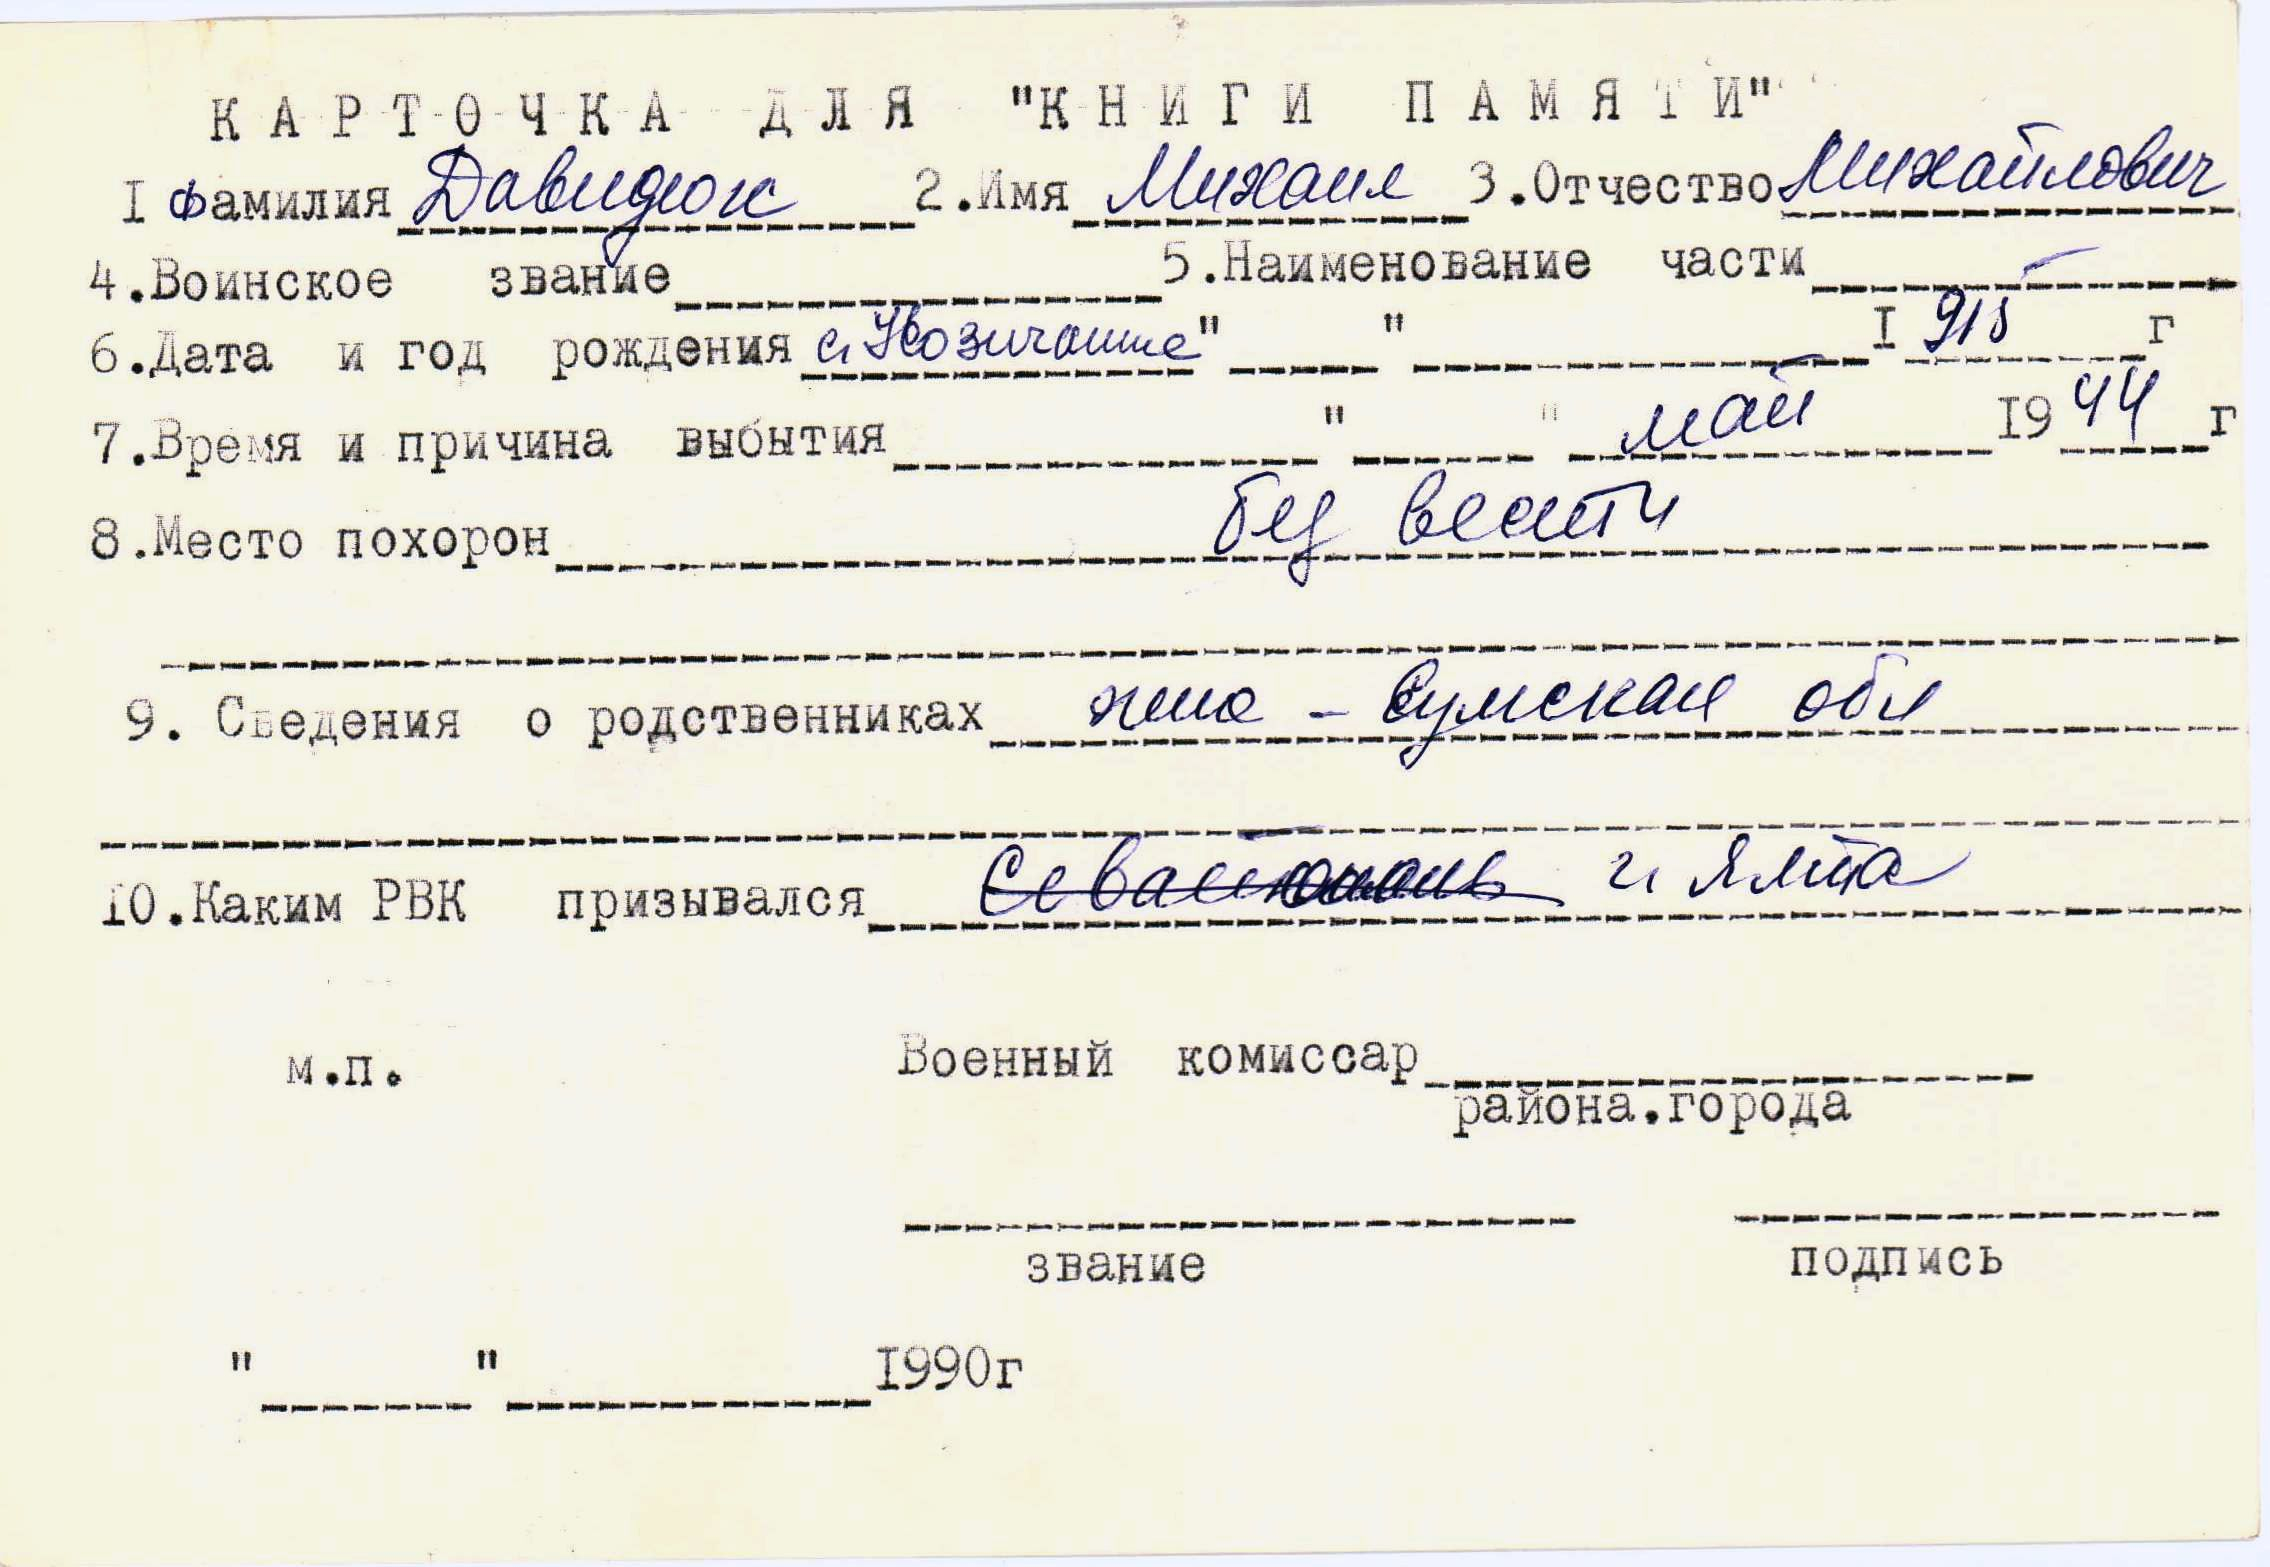 КАРТОЧКА ДЛЯ "КНИГИ ПАМЯТИ"
I Фамилия Давидюк 2.Имя Михаил 3.Отчество Михайлович
4.Воинское звание 5.Наименование части
6.Дата и год рождения с. " " I915 г
7.Время и причина выбытия " " май 1944 г
8.Место похорон без вести
9. Сведения о родственниках - Сумская обл
10.Каким РВК призывался Севастополь г. Ялта
м.п. Военный комиссар
района.города
звание подпись
" " I990г